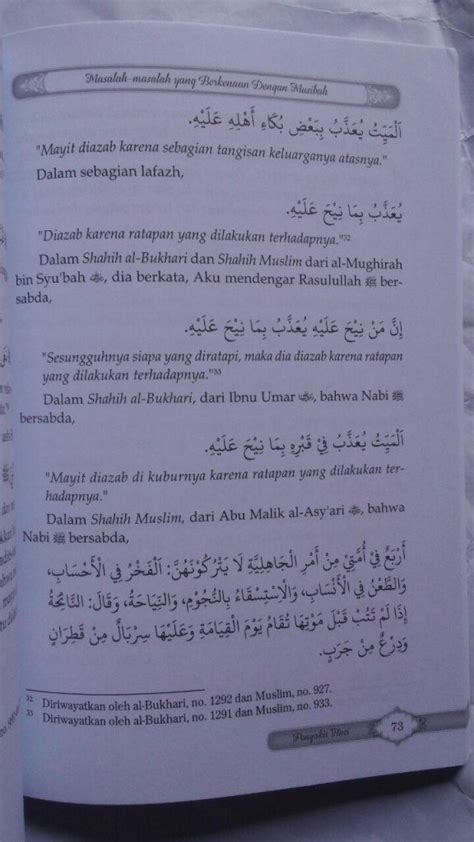 Masalah-masalah yang Berkenaan Dengan Musibah
اَلْمَيِّتُ يُعَذَّبُ بِبَعْضِ بُكَاءِ أَهْلِهِ عَلَيْهِ.
"Mayit diazab karena sebagian tangisan keluarganya atasnya."
Dalam sebagian lafazh,
يُعَذَّبُ بِمَا نِيْحَ عَلَيْهِ.
"Diazab karena ratapan yang dilakukan terhadapnya."32
Dalam Shahih al-Bukhari dan Shahih Muslim dari al-Mughirah
bin Syu'bah, dia berkata, Aku mendengar Rasulullah ﷺ ber-
sabda,
إِنَّ مَنْ نِيْحَ عَلَيْهِ يُعَذَّبُ بِمَا نِيْحَ عَلَيْهِ.
"Sesungguhnya siapa yang diratapi, maka dia diazab karena ratapan
yang dilakukan terhadapnya."33
Dalam Shahih al-Bukhari, dari Ibnu Umar, bahwa Nabi ﷺ
bersabda,
اَلْمَيِّتُ يُعَذَّبُ فِيْ قَبْرِهِ بِمَا نِيْحَ عَلَيْهِ.
"Mayit diazab di kuburnya karena ratapan yang dilakukan ter-
hadapnya."
Dalam Shahih Muslim, dari Abu Malik al-Asy'ari, bahwa
Nabi ﷺ bersabda,
أَرْبَعٌ فِيْ أُمَّتِيْ مِنْ أَمْرِ الْجَاهِلِيَّةِ لَا يَتْرُكُوْنَهُنَّ: اَلْفَخْرُ فِي الْأَحْسَابِ،
وَالطَّعْنُ فِي الْأَنْسَابِ، وَالْاِسْتِسْقَاءُ بِالنُّجُوْمِ، وَالنِّيَاحَةُ، وَقَالَ: اَلنَّائِحَةُ
إِذَا لَمْ تَتُبْ قَبْلَ مَوْتِهَا تُقَامُ يَوْمَ الْقِيَامَةِ وَعَلَيْهَا سِرْبَالٌ مِنْ قَطِرَانٍ
وَدِرْعٌ مِنْ جَرَبٍ.
32 Diriwayatkan oleh al-Bukhari, no. 1292 dan Muslim, no. 927.
33 Diriwayatkan oleh al-Bukhari, no. 1291 dan Muslim, no. 933.
73